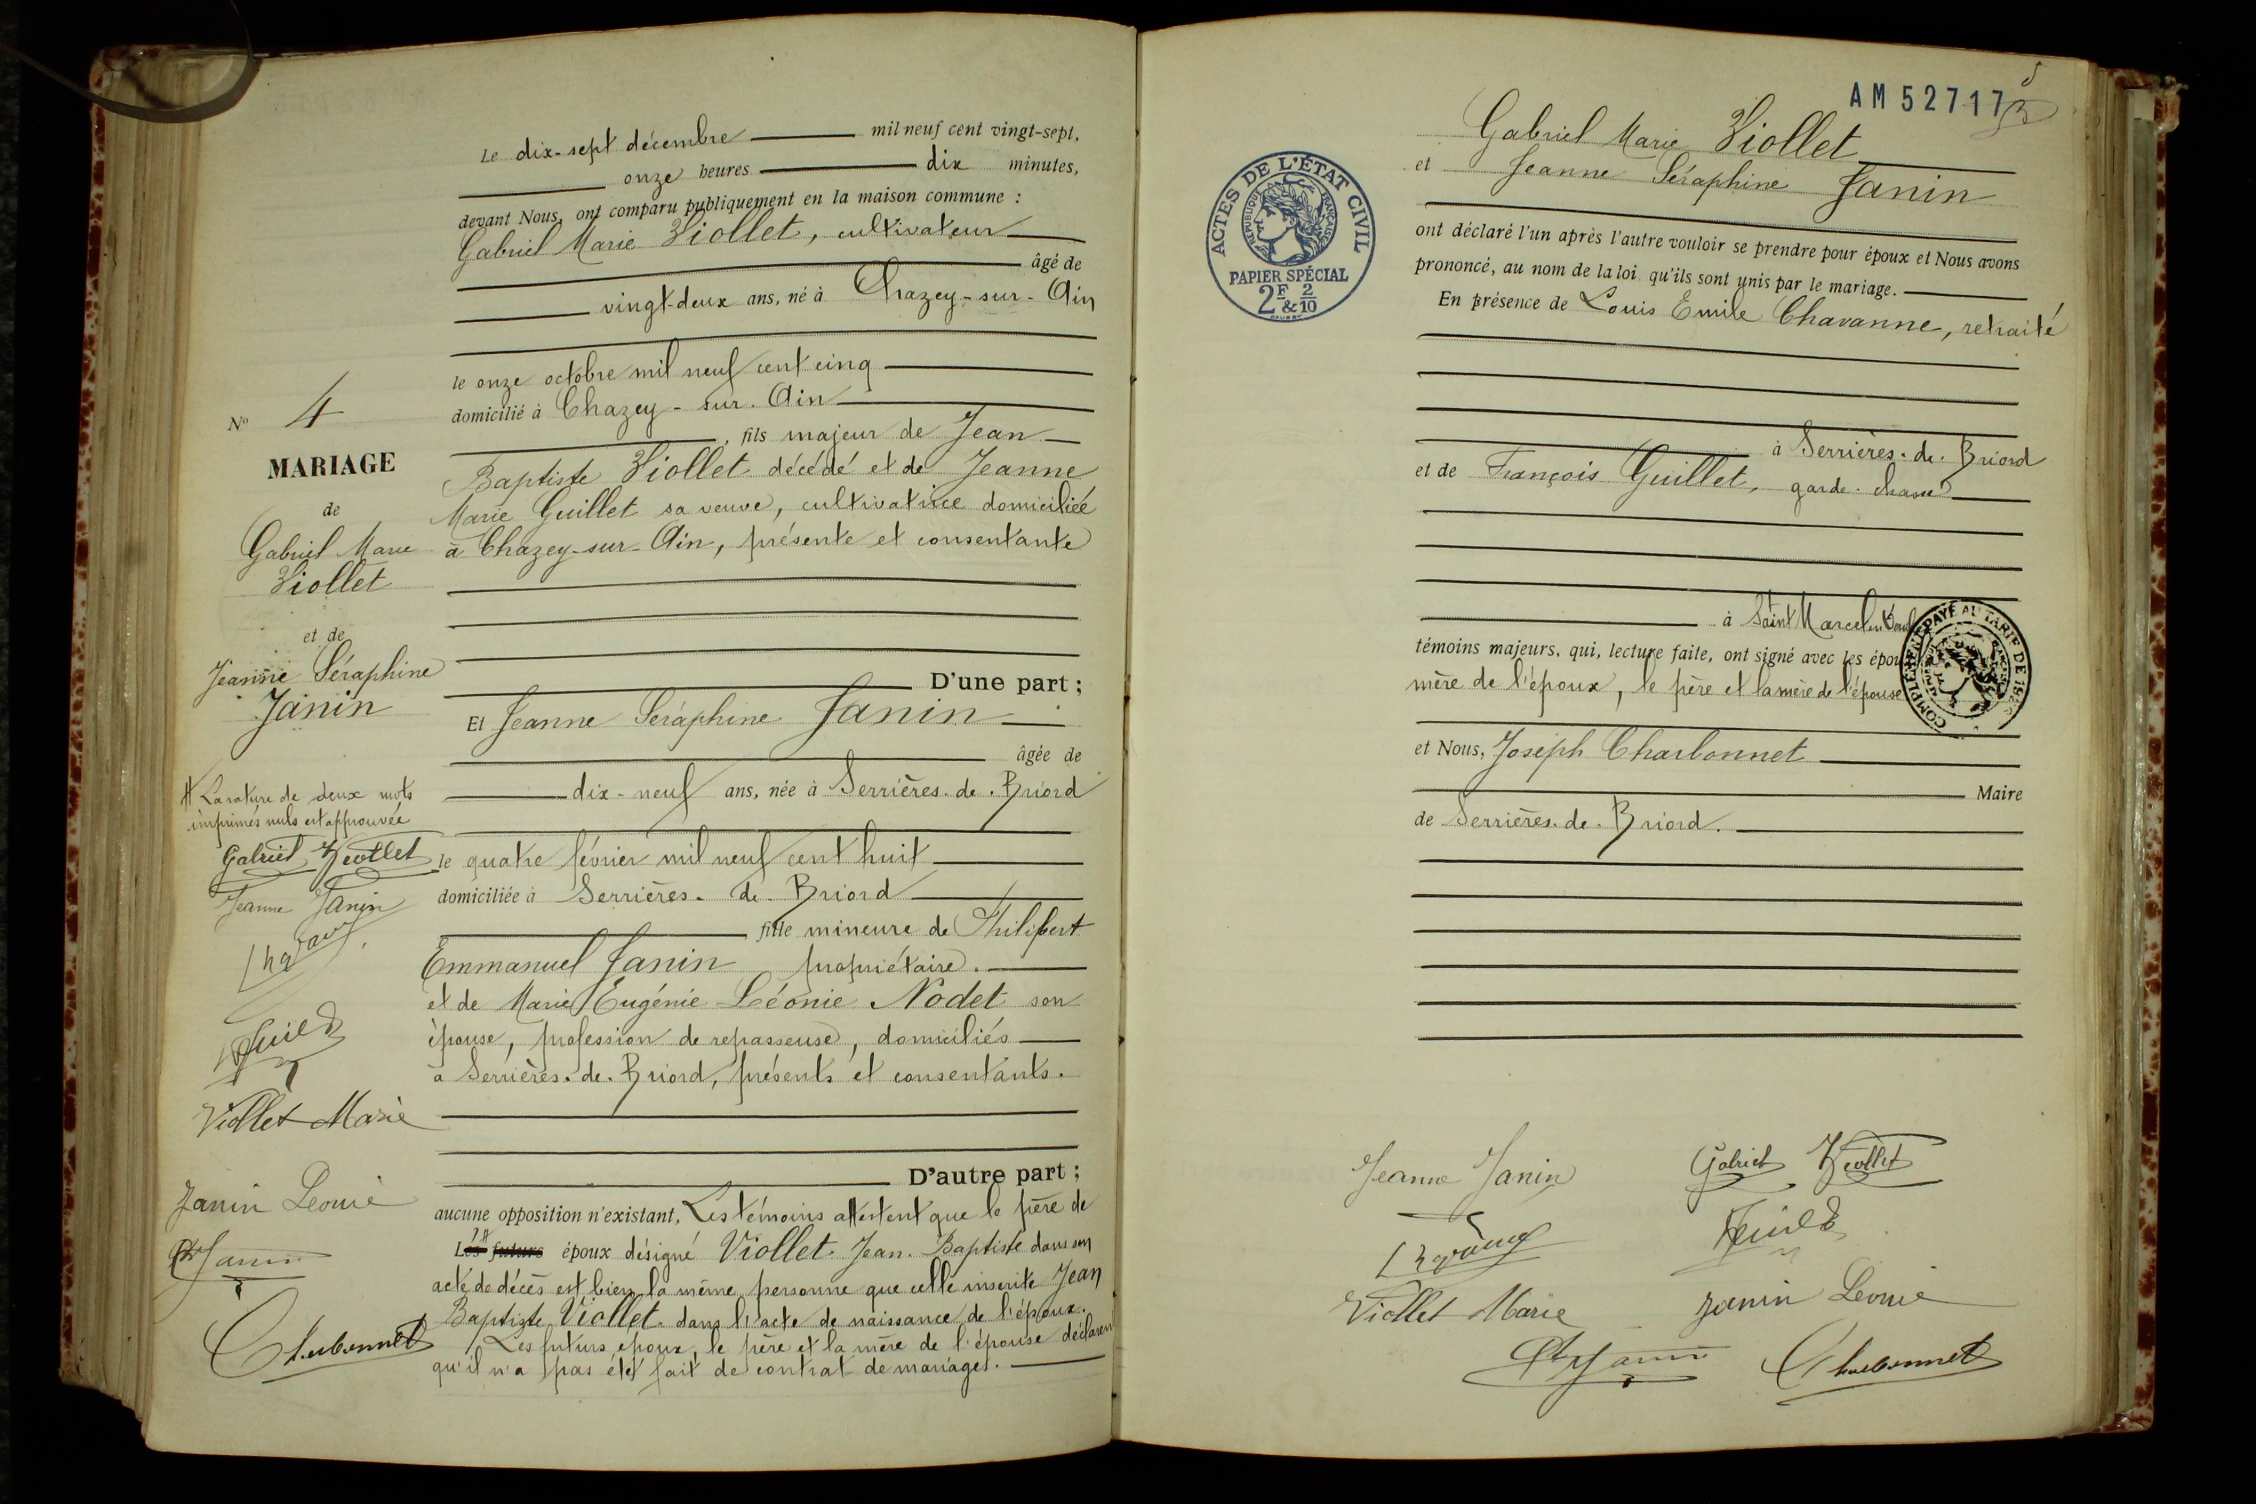 Le dix-sept décembre mil neuf cent vingt-sept,
onze heures dix minutes,
devant Nous, ont comparu publiquement en la maison commune :
Gabriel Marie Viollet, cultivateur
âgé de
vingt-deux ans, né à Chazey-sur-Ain
le onze octobre mil neuf cent cinq
domicilié à Chazey-sur-Ain
, fils majeur de Jean
Baptiste Viollet décédé et de Jeanne
Marie Guillet sa veuve, cultivatrice domiciliée
à Chazey-sur-Ain, présente et consentante
D'une part ;
Et Jeanne Séraphine Janin
âgée de
dix-neuf ans, née à Serrières-de-Briord
le quatre février mil neuf cent huit
domiciliée à Serrières-de-Briord
fille mineure de Philibert
Emmanuel Janin propriétaire.
et de Marie Eugénie Léonie Nodet son
épouse, profession de repasseuse, domiciliés
à Serrières-de-Briord, présents et consentants.
D'autre part ;
aucune opposition n'existant, Les témoins attestent que le père de
Les futurs époux désigné Viollet Jean-Baptiste dans son
acte de décès est bien la même personne que celle inscrite Jean
Baptiste Viollet dans l'acte de naissance de l'époux.
Les futurs époux, le père et la mère de l'épouse déclarent
qu'il n'a pas été fait de contrat de mariage.
No 4
MARIAGE
de
Gabriel Marie
Viollet
et de
Jeanne Séraphine
Janin
La rature de deux mots
imprimés nuls est approuvée
Gabriel Viollet
Jeanne Janin
Viollet Marie
Janin Léonie
Janin
Charbonnet
AM 527173
Gabriel Marie Viollet
et Jeanne Séraphine Janin
ont déclaré l'un après l'autre vouloir se prendre pour époux et Nous avons
prononcé, au nom de la loi qu'ils sont unis par le mariage.
En présence de Louis Emile Chavanne, retraité
à Serrières-de-Briord
et de François Guillet, garde-chasse
à Saint Marcel en
témoins majeurs, qui, lecture faite, ont signé avec les épou
mère de l'époux, le père et la mère de l'épouse
et Nous, Joseph Charbonnet
Maire
de Serrières-de-Briord.
ACTES DE L'ÉTAT CIVIL
RÉPUBLIQUE FRANÇAISE
PAPIER SPÉCIAL
2F & 2/10
COMPLÉMENT PAYÉ AU TARIF DE
Jeanne Janin Gabriel Viollet
Viollet Marie Janin Léonie
Janin Charbonnet